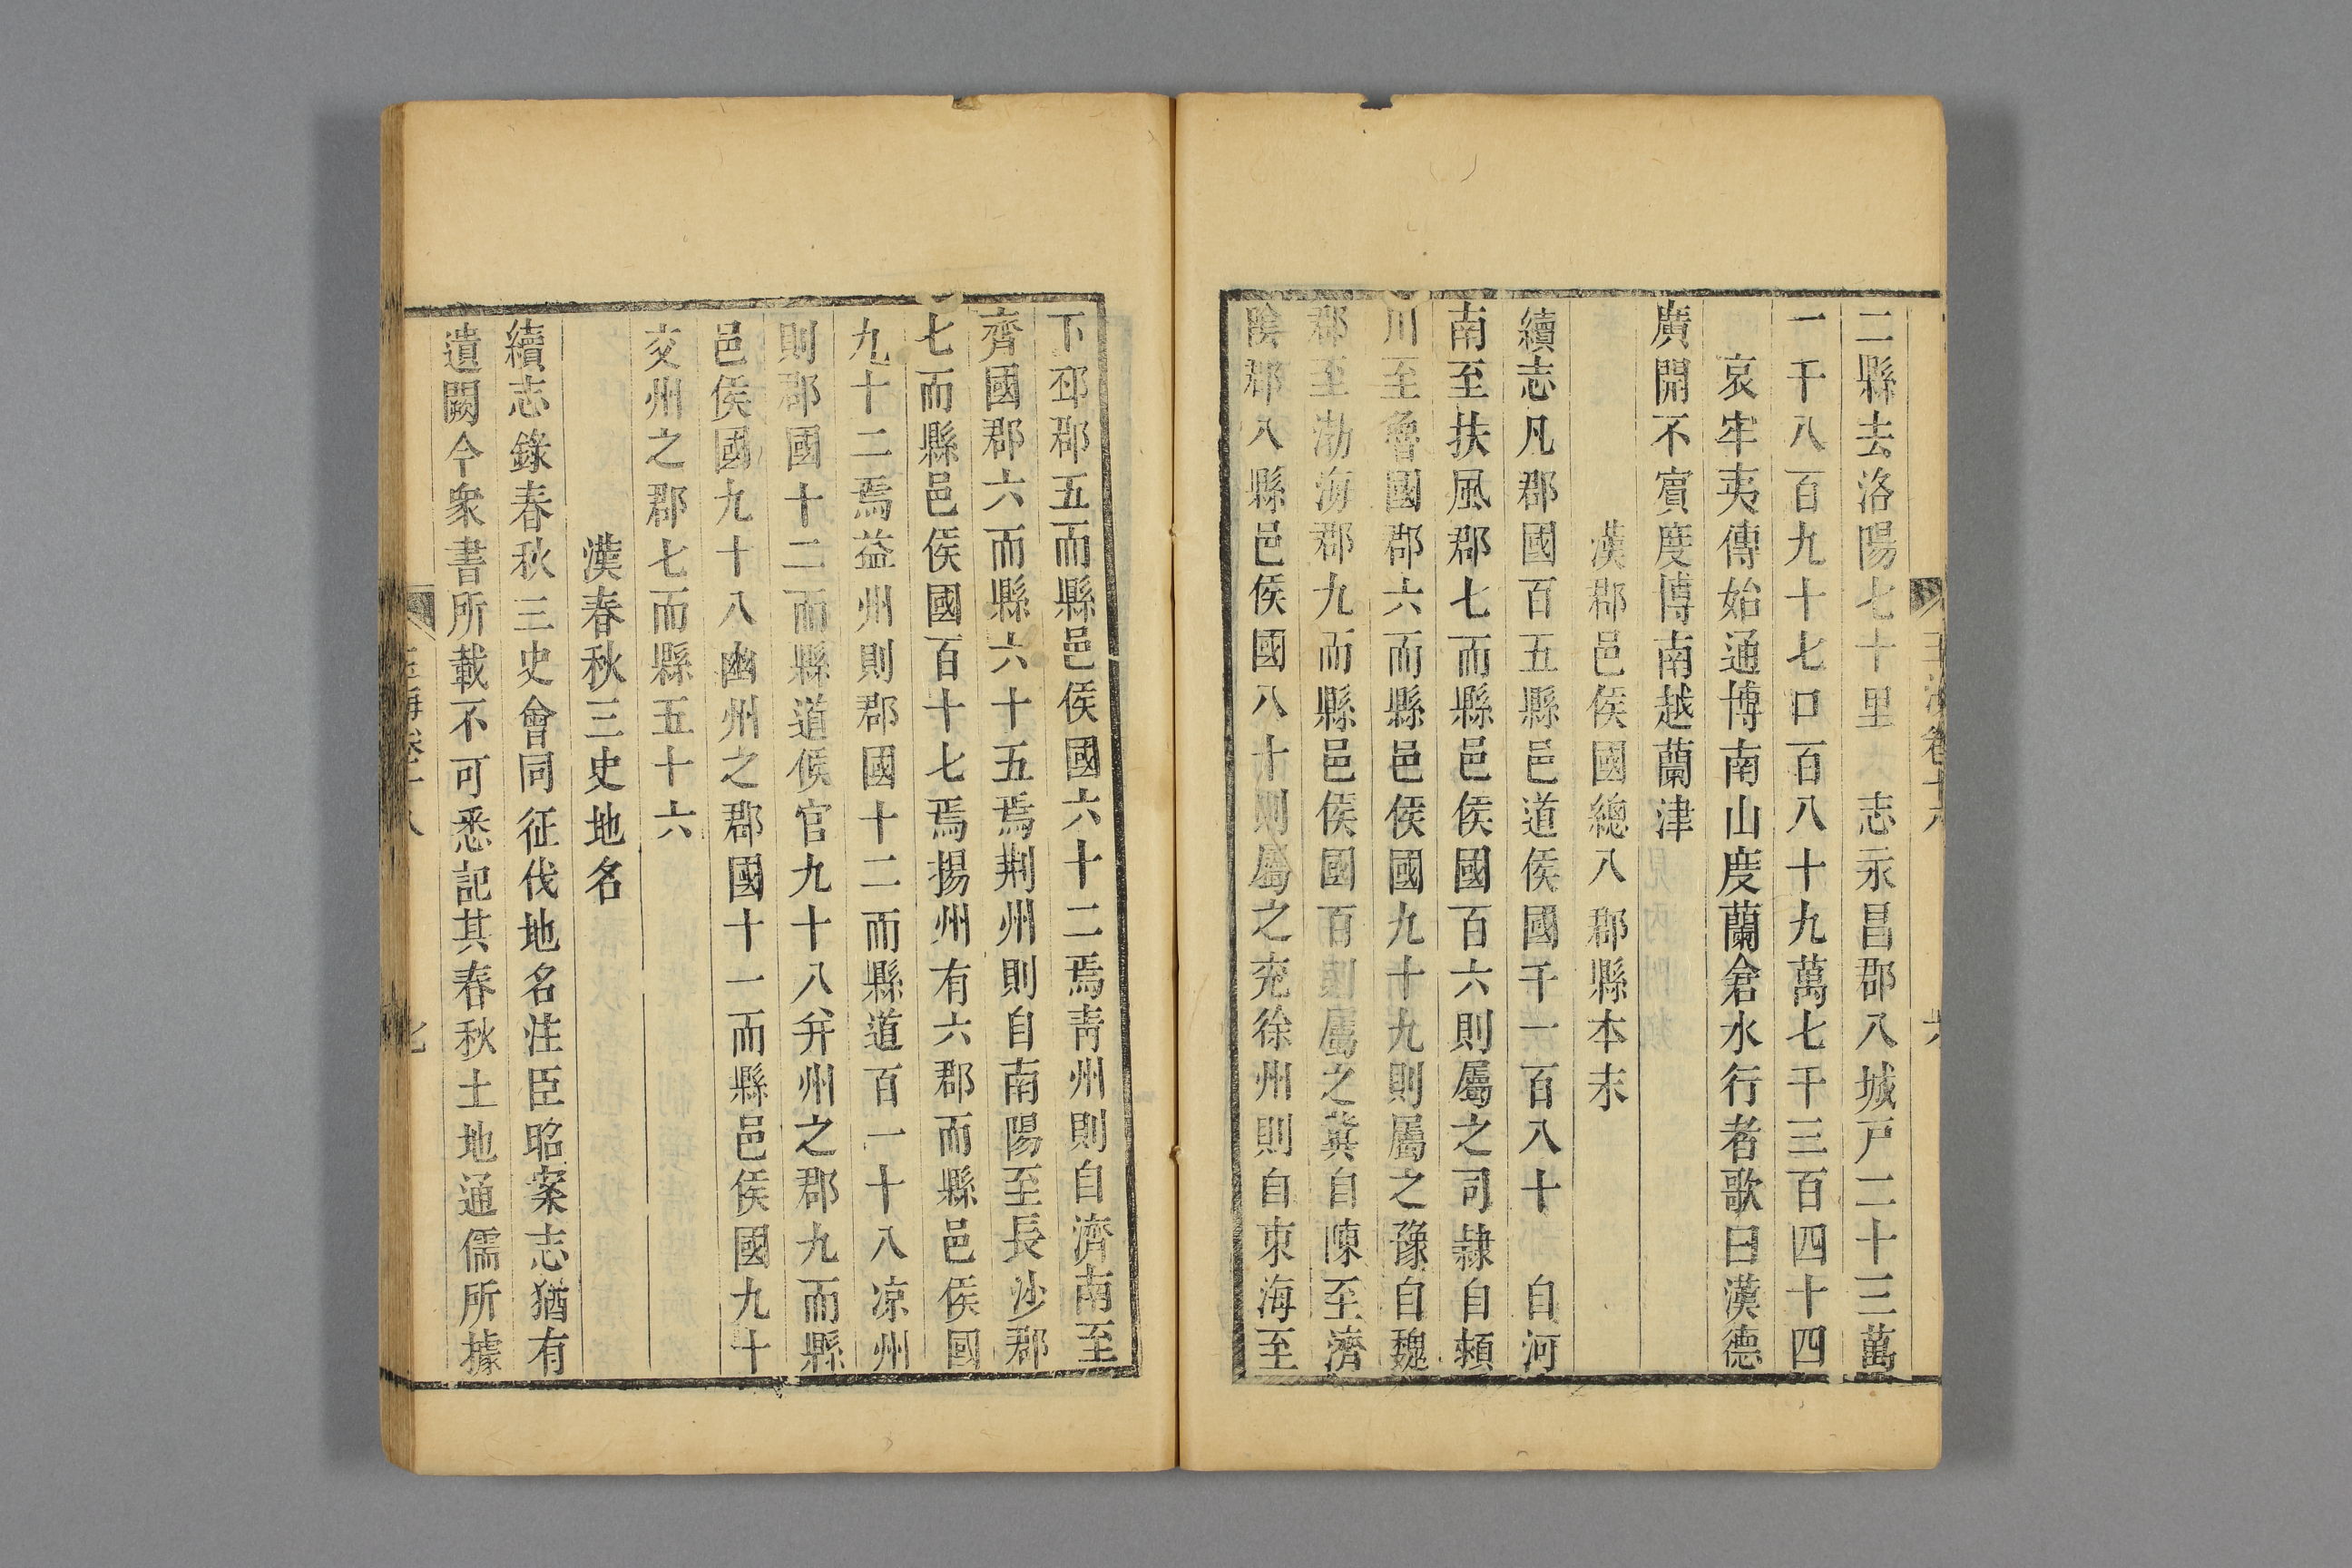 二縣去洛陽七十里　志永昌郡八城戸二十三萬
一千八百九十七口百八十九萬七千三百四十四
哀牢夷傳始通博南山度蘭倉水行者歌曰漢德
廣開不賓度博南越蘭津
漢郡邑侯國總八郡縣本末
續志凡郡國百五縣邑道侯國千一百八十　自河
南至扶風郡七而縣邑侯國百六則屬之司隷自潁
川至魯國郡六而縣邑侯國九十九則屬之豫自魏
郡至渤海郡九而縣邑侯國百則屬之冀自陳至濟
隂郡八縣邑侯國八十則屬之兖徐州則自東海至
下邳郡五而縣邑侯國六十二焉靑州則自濟南至
齊國郡六而縣六十五焉荆州則自南陽至長沙郡
七而縣邑侯國百十七焉揚州有六郡而縣邑侯國
九十二焉益州則郡國十二而縣道百一十八凉州
則郡國十二而縣道候官九十八并州之郡九而縣
邑侯國九十八幽州之郡國十一而縣邑侯國九十
交州之郡七而縣五十六
漢春秋三史地名
續志錄春秋三史會同征伐地名注臣昭案志猶有
遺闕今衆書所載不可悉記其春秋土地通儒所據